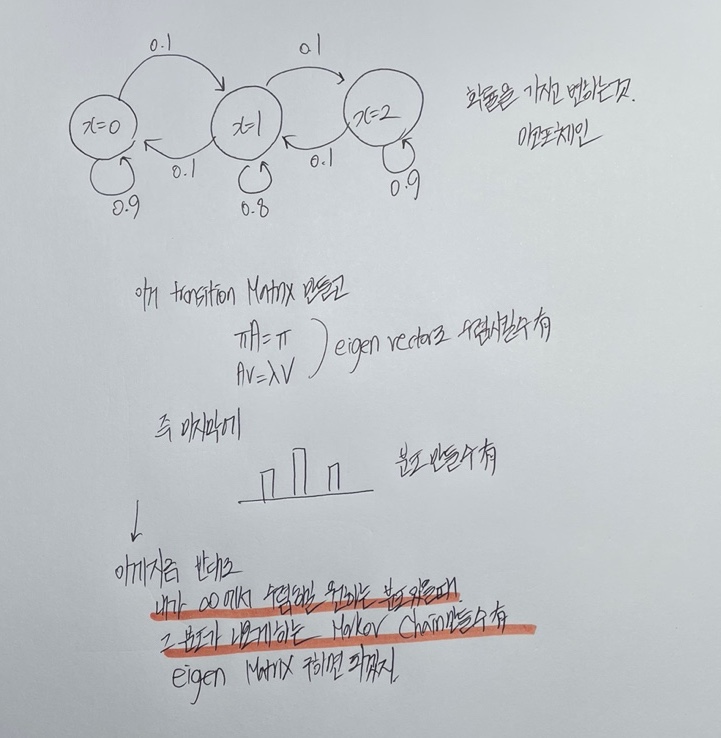 0.1
0.1
x=0
x=1
x=2
확률을 가지고 변하는것.
마코프체인
0.1
0.1
0.9
0.8
0.9
이거 transition Matrix 만들고
πA=π
Av=λv
eigen vector로 수렴시킬수有
즉 마지막에
분포 만들수有
이게지금 반대로
내가 ∞에서 수렴하길 원하는 분포있을때.
그 분포가 나오게하는 Markov Chain만들수有
eigen Matrix 구하면 되겠지.